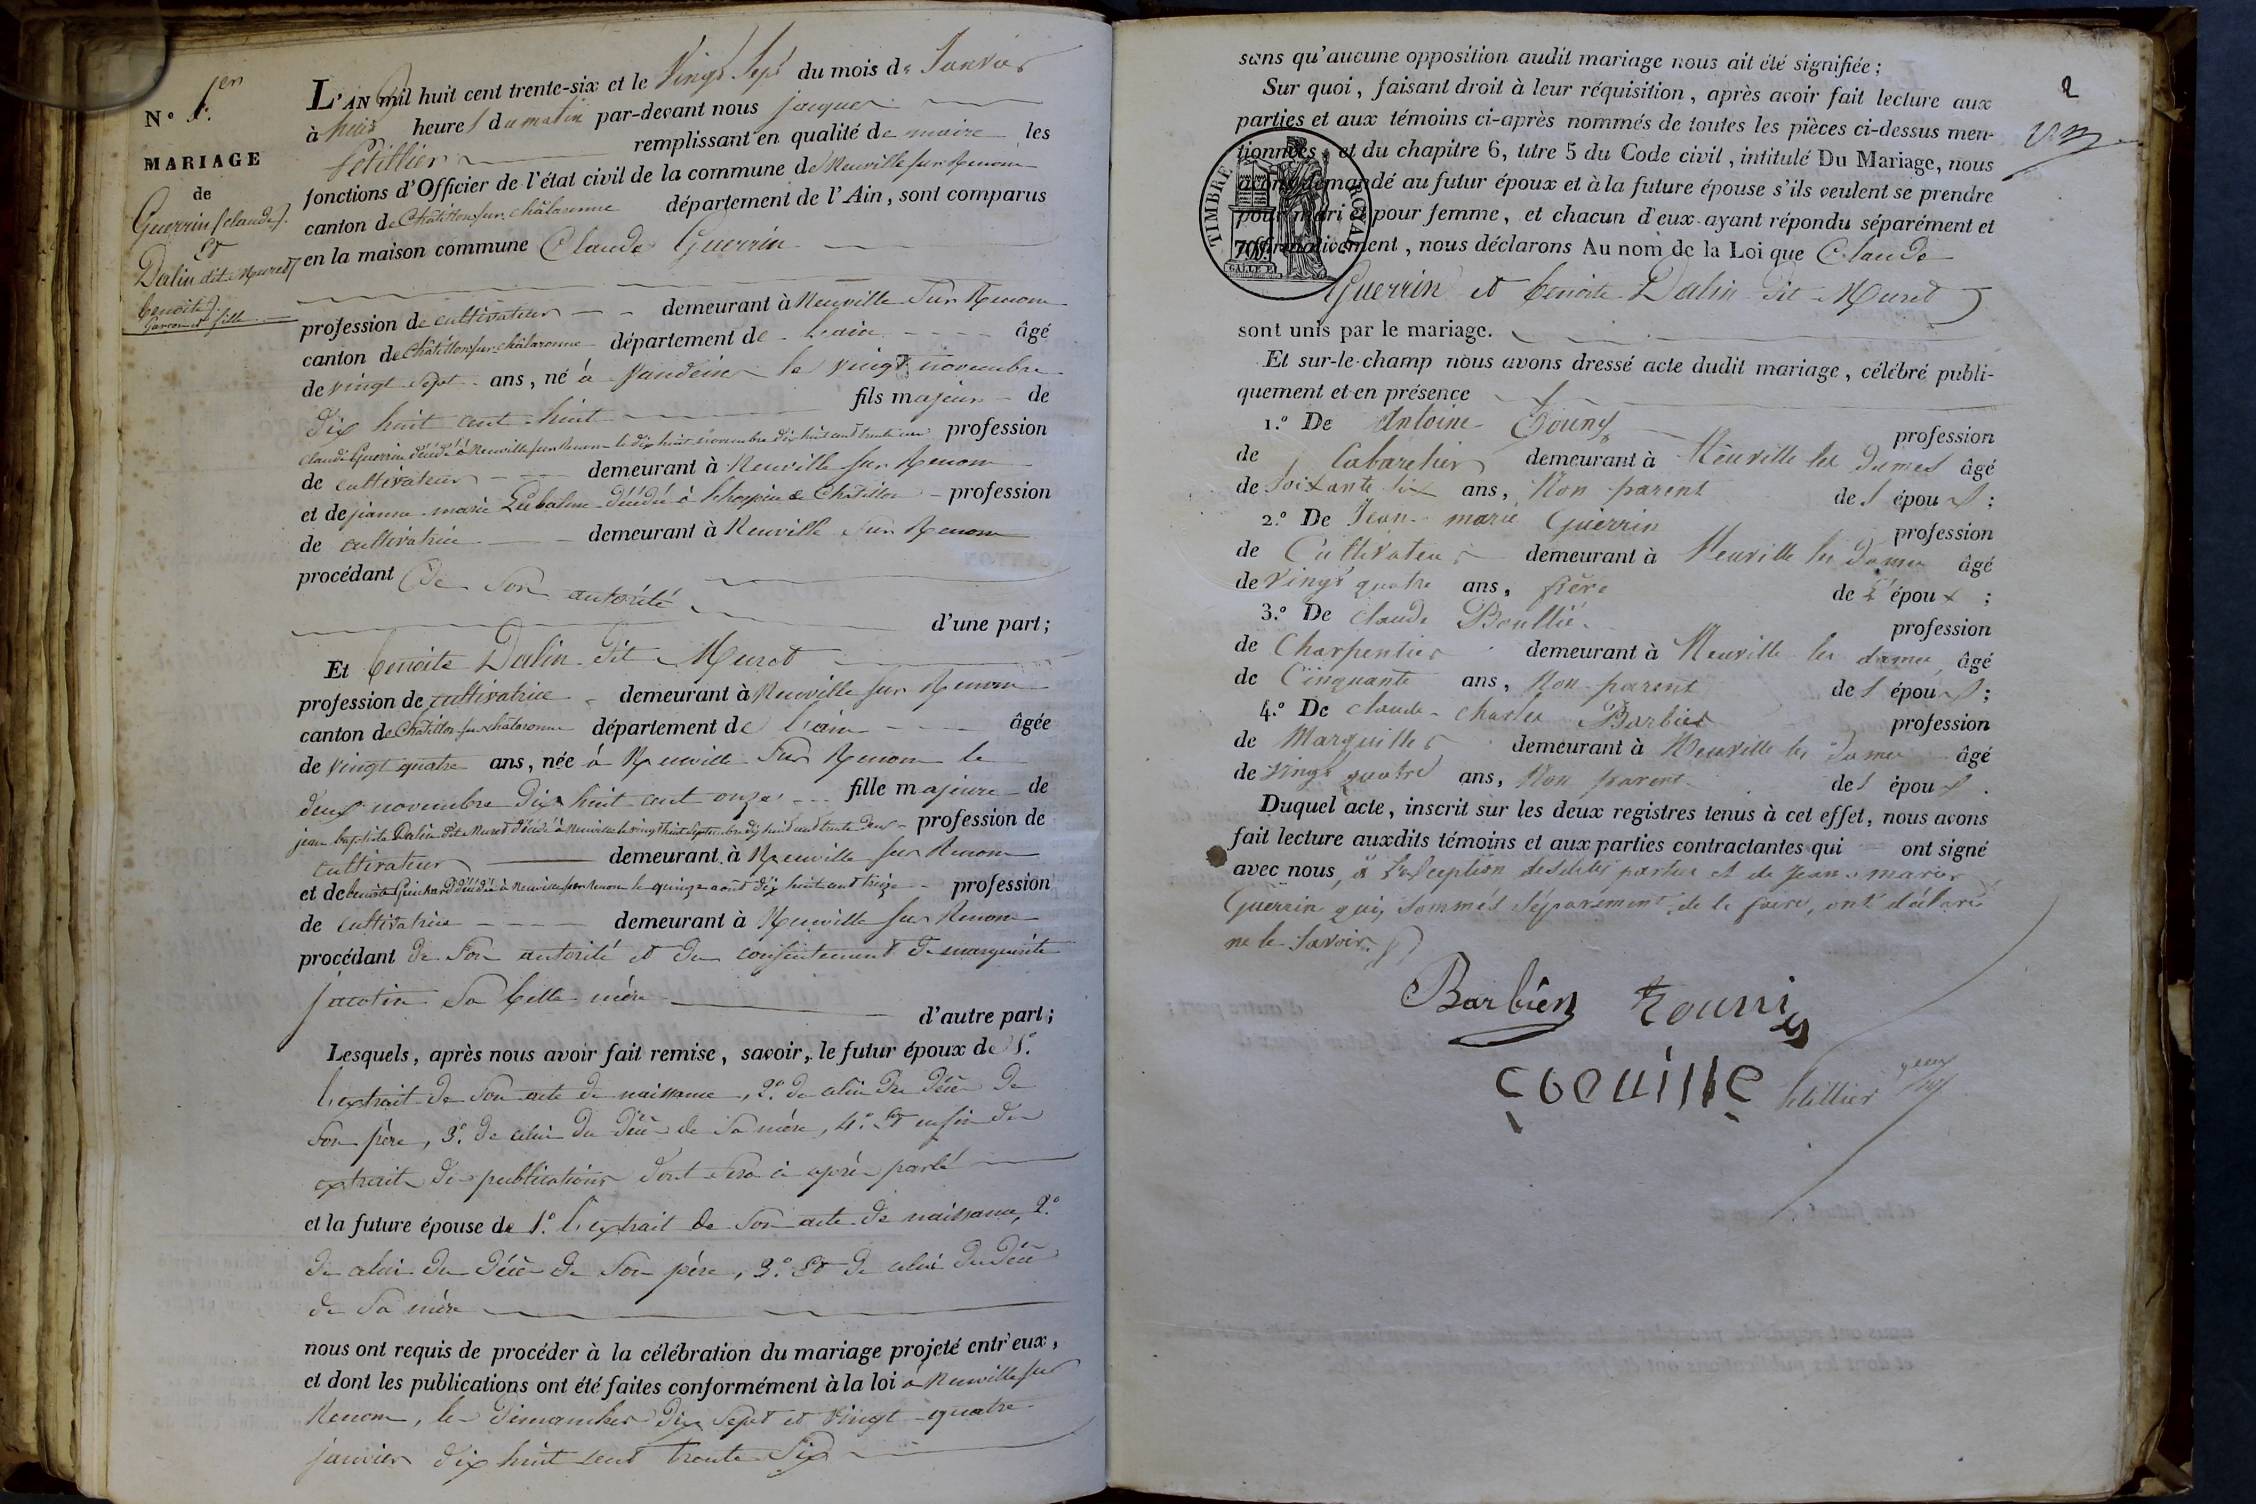 N.º 1.er
MARIAGE
de
Guerrin (claude).
Et
Dalin dit Muret
benoite).
garcon et fille
L'AN mil huit cent trente-six et le vingt sept du mois de Janvier
à huit heures du matin par-devant nous jacques
Pétillier remplissant en qualité de maire les
fonctions d'Officier de l'état civil de la commune de Neuville sur Renom
canton de Châtillon sur châlaronne département de l'Ain, sont comparus
en la maison commune Claude Guerrin
profession de cultivateur demeurant à Neuville Sur Renom
canton de Châtillon sur châlaronne département de l'ain âgé
de vingt sept ans, né à Vandeins le vingt novembre
dix huit cent huit fils majeur de
Claude Guerrin décédé à Neuville sur Renom le dix huit novembre dix huit cent trente un profession
de cultivateur demeurant à Neuville sur Renom
et de jeanne marie décédé à de Châtillon profession
de cultivatrice demeurant à Neuville Sur Renom
procédant de son autorité
d'une part;
Et benoite Dalin dit Muret
profession de cultivatrice demeurant à Neuville sur Renom
canton de Châtillon sur châlaronne département de l'ain âgée
de vingt quatre ans, née à Neuville Sur Renom le
deux novembre dix huit cent onze fille majeure de
jean baptiste Dalin dit Muret décédé à Neuville le vingt huit septembre dix huit cent trente deux profession de
cultivateur demeurant à Neuville sur Renom
et de benoite Guichard décédée à Neuville sur Renom le quinze août dix huit cent treize profession
de cultivatrice demeurant à Neuville sur Renom
procédant de son autorité et du consentement de marguerite
jacotin sa belle mère
d'autre part;
Lesquels, après nous avoir fait remise, savoir, le futur époux de 1.º
l'extrait de son acte de naissance, 2.º de celui du décè de
son père, 3.º de celui du décè de sa mère, 4.º Et enfin des
extraits de publications dont sera ci après parlé
et la future épouse de 1.º l'extrait de son acte de naissance, 2.º
de celui du décè de son père, 3.º Et de celui du décè
de sa mère
nous ont requis de procéder à la célébration du mariage projeté entr'eux,
et dont les publications ont été faites conformément à la loi à Neuville sur
Renom, les dimanches dix sept et vingt quatre
janvier dix huit cent trente six
2
sans qu'aucune opposition audit mariage nous ait été signifiée;
Sur quoi, faisant droit à leur réquisition, après avoir fait lecture aux
parties et aux témoins ci-après nommés de toutes les pièces ci-dessus men-
tionnées, et du chapitre 6, titre 5 du Code civil, intitulé Du Mariage, nous
avons demandé au futur époux et à la future épouse s'ils veulent se prendre
pour mari et pour femme, et chacun d'eux ayant répondu séparément et
affirmativement, nous déclarons Au nom de la Loi que Claude
TIMBRE ROYAL
Guerrin et benoite Dalin dit Muret
sont unis par le mariage.
Et sur-le-champ nous avons dressé acte dudit mariage, célébré publi-
quement et en présence
1.º De Antoine profession
de Cabaretier demeurant à Neuville les Dames âgé
de soixante six ans, Non parent des époux;
2.º De Jean marie Guerrin profession
de Cultivateur demeurant à Neuville les Dames âgé
de vingt quatre ans, frère de L'époux;
3.º De Claude Boullié profession
de Charpentier demeurant à Neuville les dames âgé
de Cinquante ans, Non parent des époux;
4.º De claude charles Barbier profession
de Marguiller demeurant à Neuville les Dames âgé
de vingt quatre ans, Non parent des époux.
Duquel acte, inscrit sur les deux registres tenus à cet effet, nous avons
fait lecture auxdits témoins et aux parties contractantes qui ont signé
avec nous, à l'exception desdites parties et de Jean marie
Guerrin qui, sommés séparement de le faire, ont déclaré
ne le savoir.
Barbier